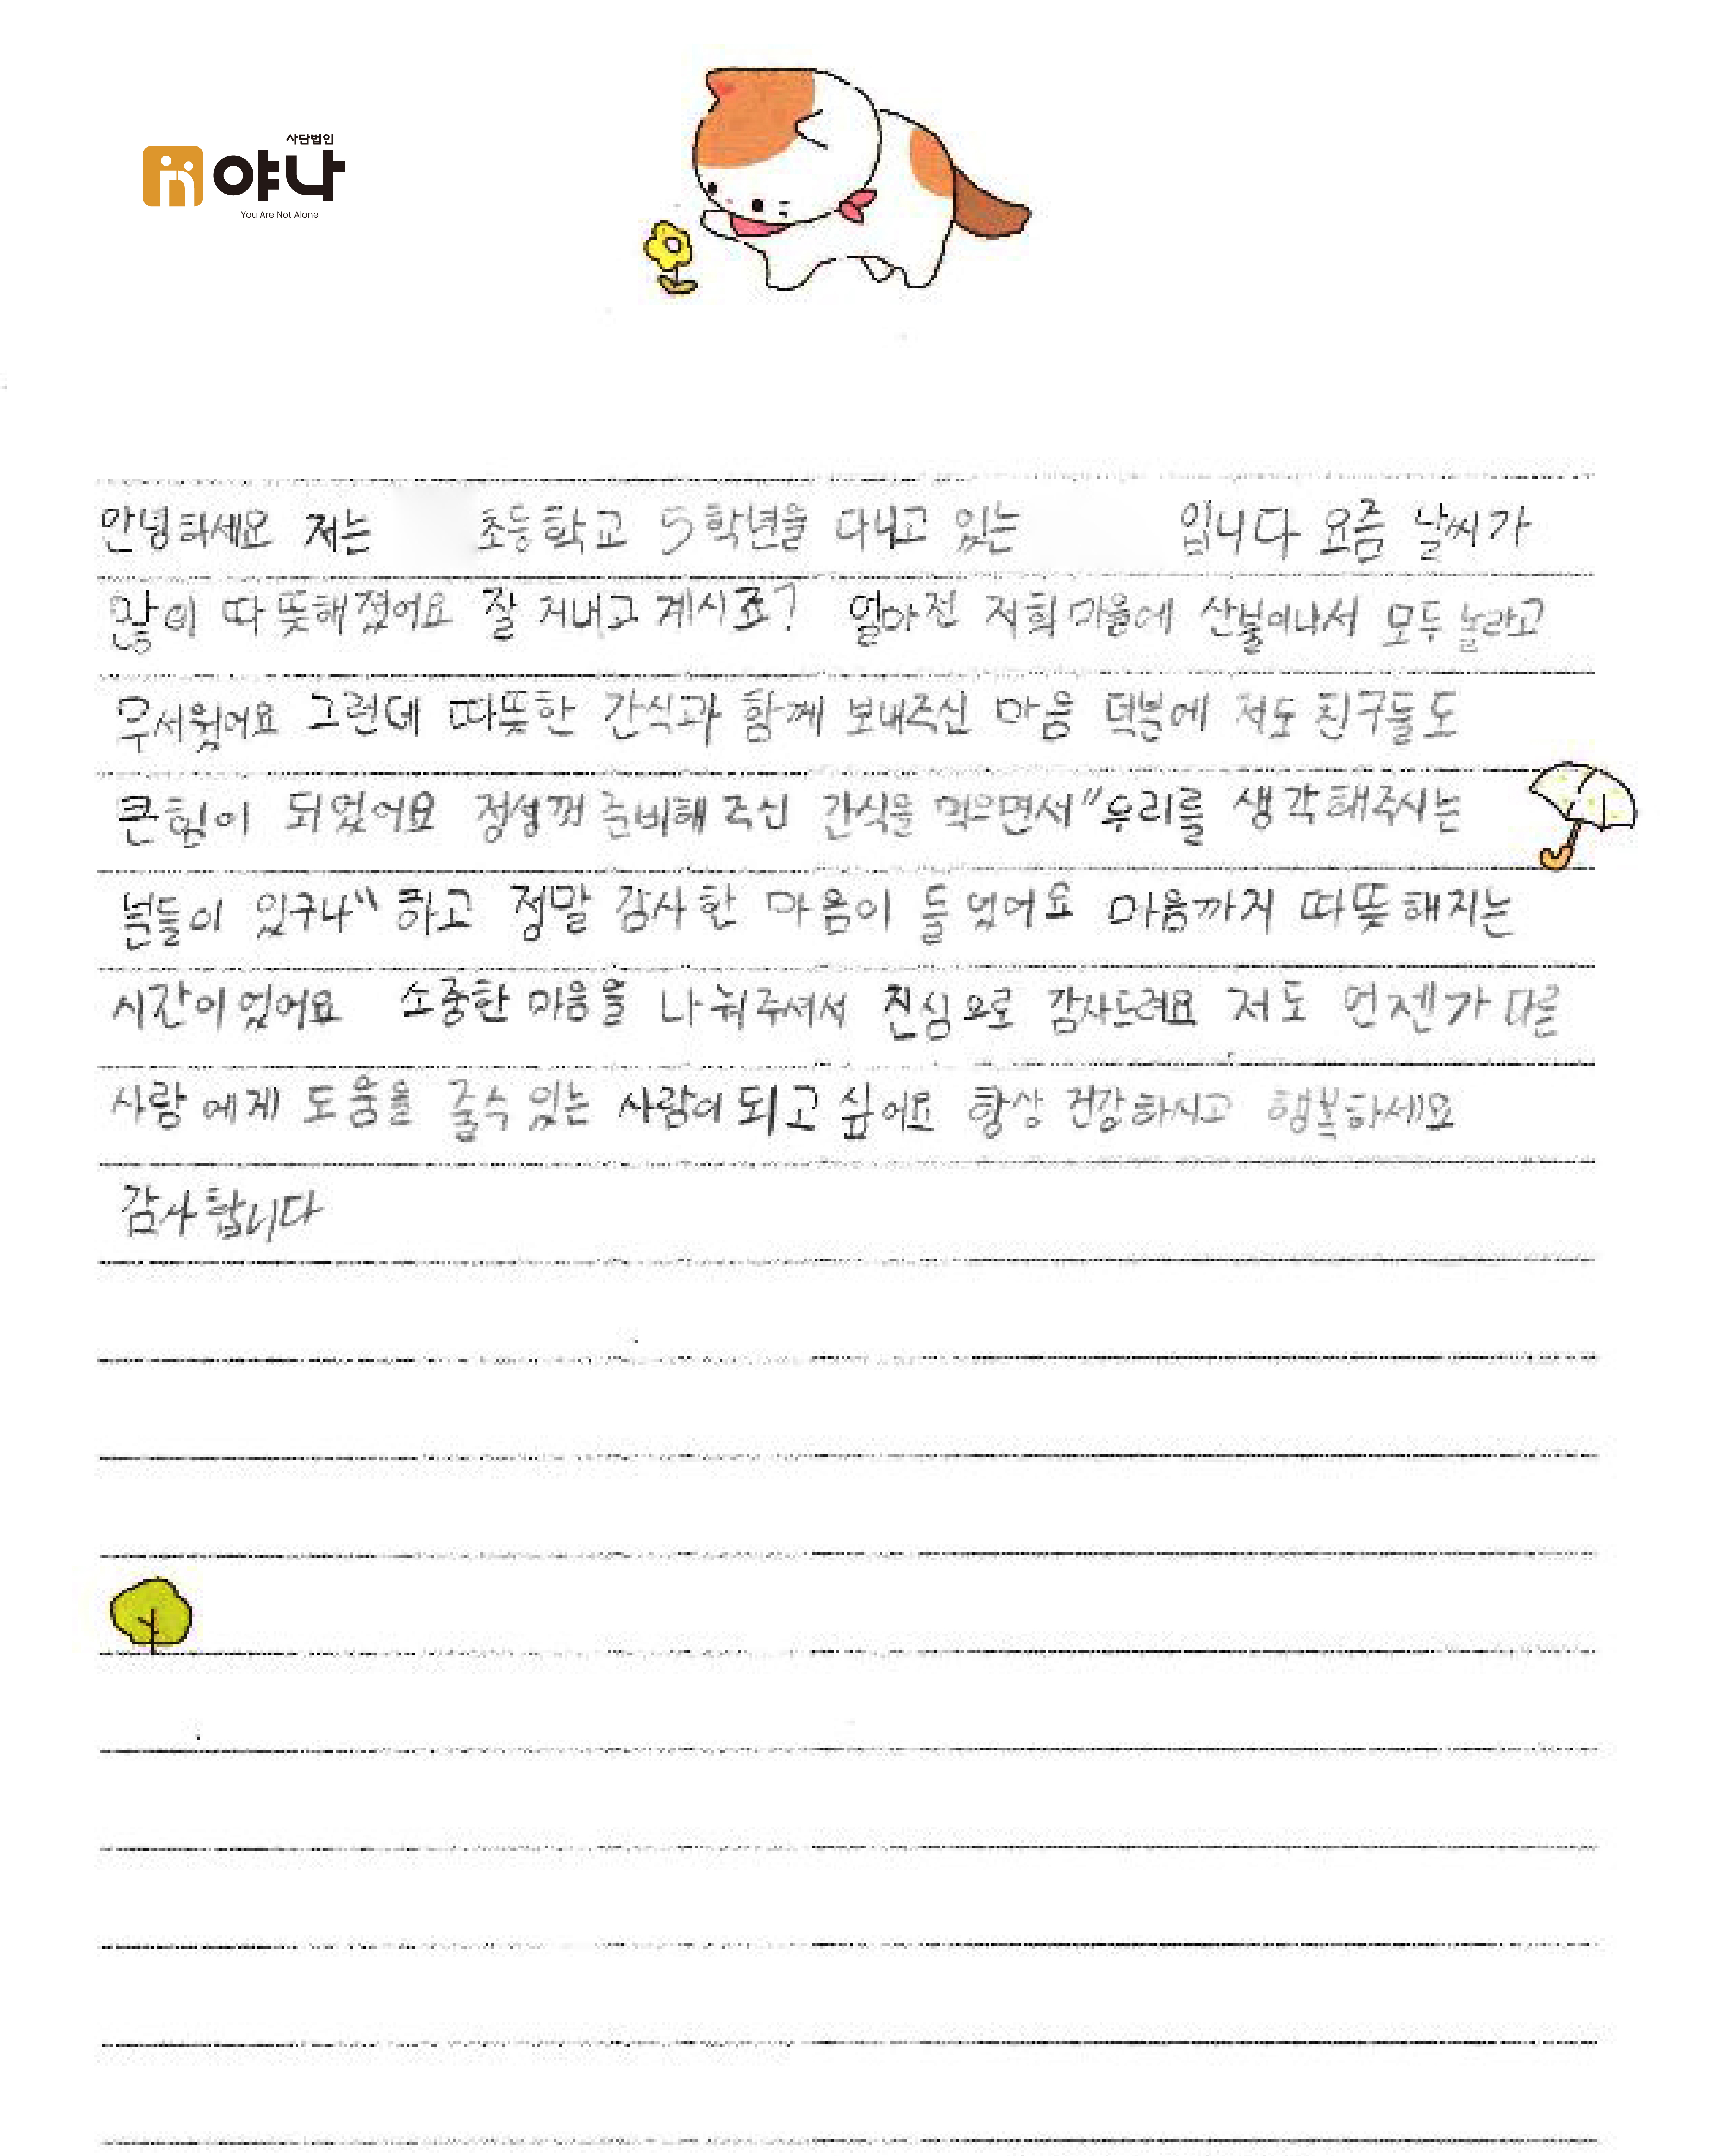 사단법인
야나
You Are Not Alone
안녕하세요 저는 초등학교 5학년을 다니고 있는 입니다 요즘 날씨가
많이 따뜻해졌어요 잘 지내고 계시죠? 얼마전 저희 마을에 산불이나서 모두 놀라고
무서웠어요 그런데 따뜻한 간식과 함께 보내주신 마음 덕분에 저도 친구들도
큰힘이 되었어요 정성껏 준비해 주신 간식을 먹으면서 "우리를 생각해주시는
분들이 있구나" 하고 정말 감사한 마음이 들었어요 마음까지 따뜻해지는
시간이었어요 소중한 마음을 나눠주셔서 진심으로 감사드려요 저도 언젠가 다른
사람에게 도움을 줄수 있는 사람이 되고 싶어요 항상 건강하시고 행복하세요
감사합니다